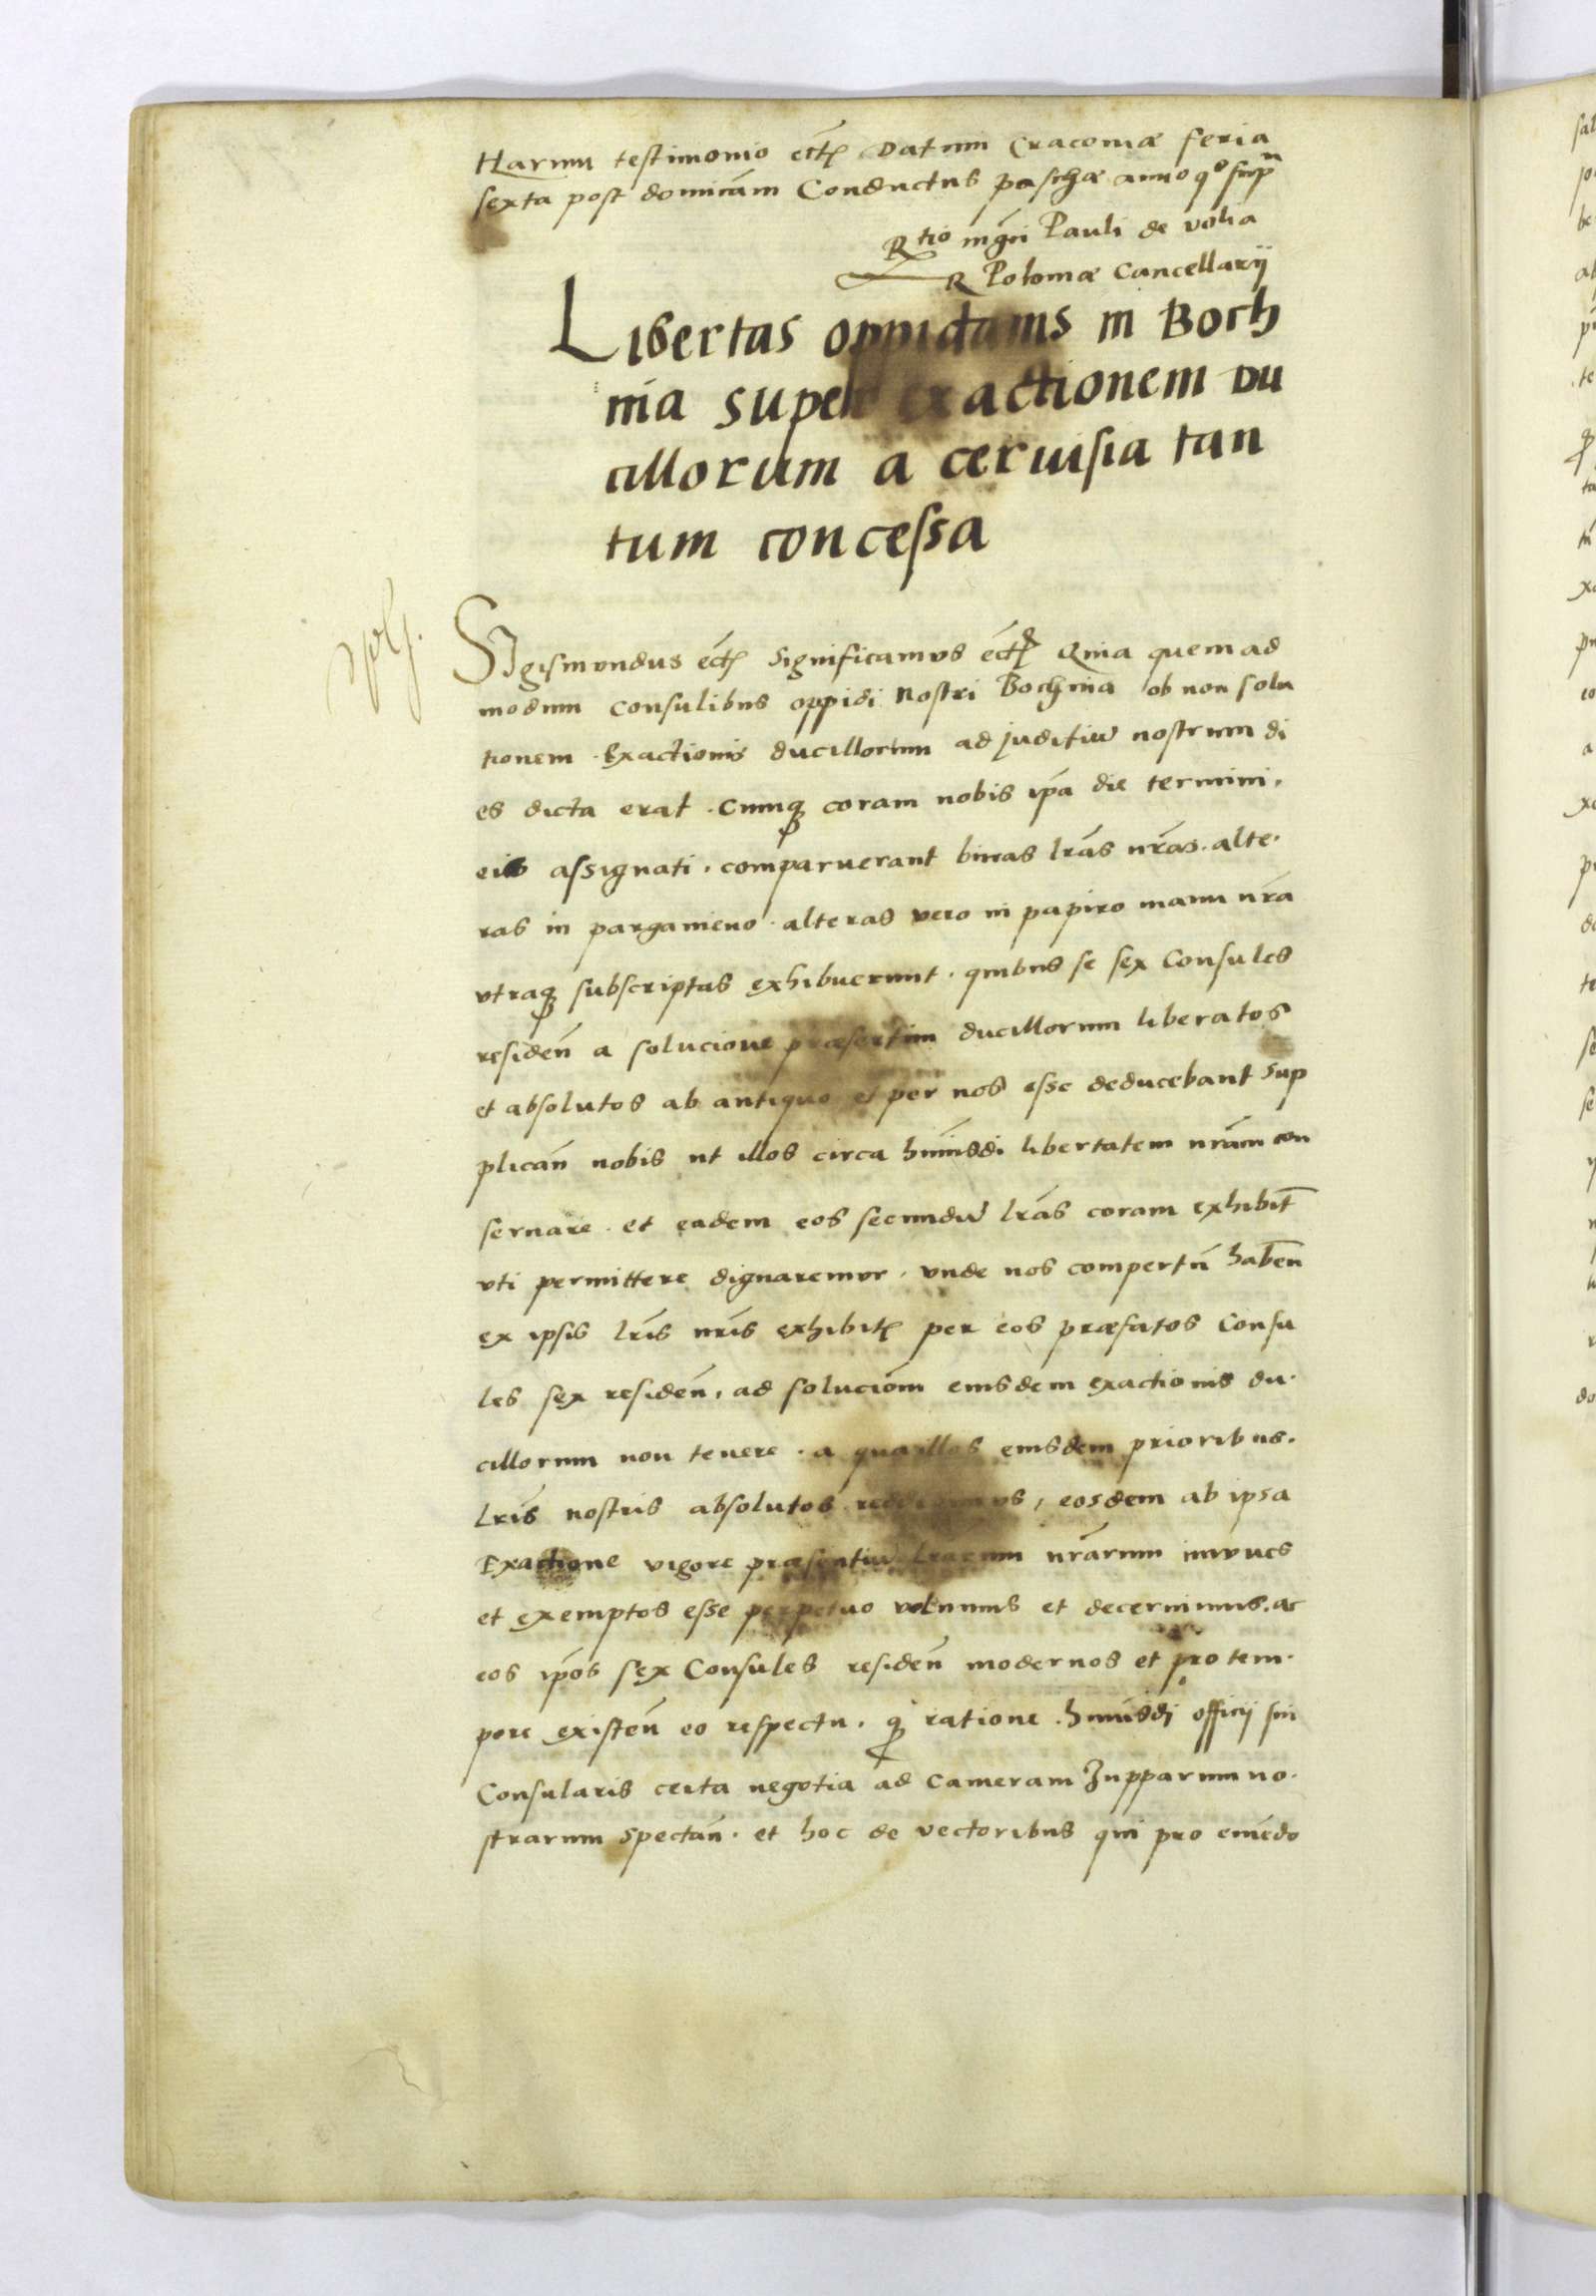 Harum testimonio ect Datum Cracoviæ feria
sexta post dominicam Conductus paschæ anno qo supn
Rtio mgci Pauli de volia
R Poloniæ Cancellarij
Libertas oppidanis in Boch
nia super exactionem Du
cillorum a cervisia tan
tum concessa
Sigismundus ect significamus ect Quia quemad
modum consulibus oppidi nostri Bochnia ob non solu
tionem Exactionis ducillorum ad juditiu nostrum di
es dicta erat. Cumq coram nobis ipa die termini,
eis assignati. comparuerant binas lras nras. alte.
ras in pargameno. alteras vero in papiro manu nra
utraq subscriptas exhibuerunt. quibus se sex Consules
residen a solucione præsertim ducillorum liberatos
et absolutos ab antiquo et per nos esse deducebant sup
plican nobis ut illos circa huiusdi libertatem nram con
servare. et eadem eos secundu lras coram exhibit
uti permittere dignaremur. unde nos compertu haben
ex ipsis lris nris exhibit per eos præfatos Consu
les sex residen, ad soluciom eiusdem exactionis du.
cillorum non tenere. a qua illos eiusdem prioribus.
lris nostris absolutos reddidimus, eosdem ab ipsa
Exactione vigore præsentiu lrarum nrarum immunes
et exemptos esse perpetuo volumus et decernimus. ac
eos ipos sex Consules residen modernos et pro tem.
pore existen eo respectu. q ratione huiusdi officij sui
Consularis certa negotia ad Cameram Zupparum no.
strarum spectan. et hoc de vectoribus qui pro emedo